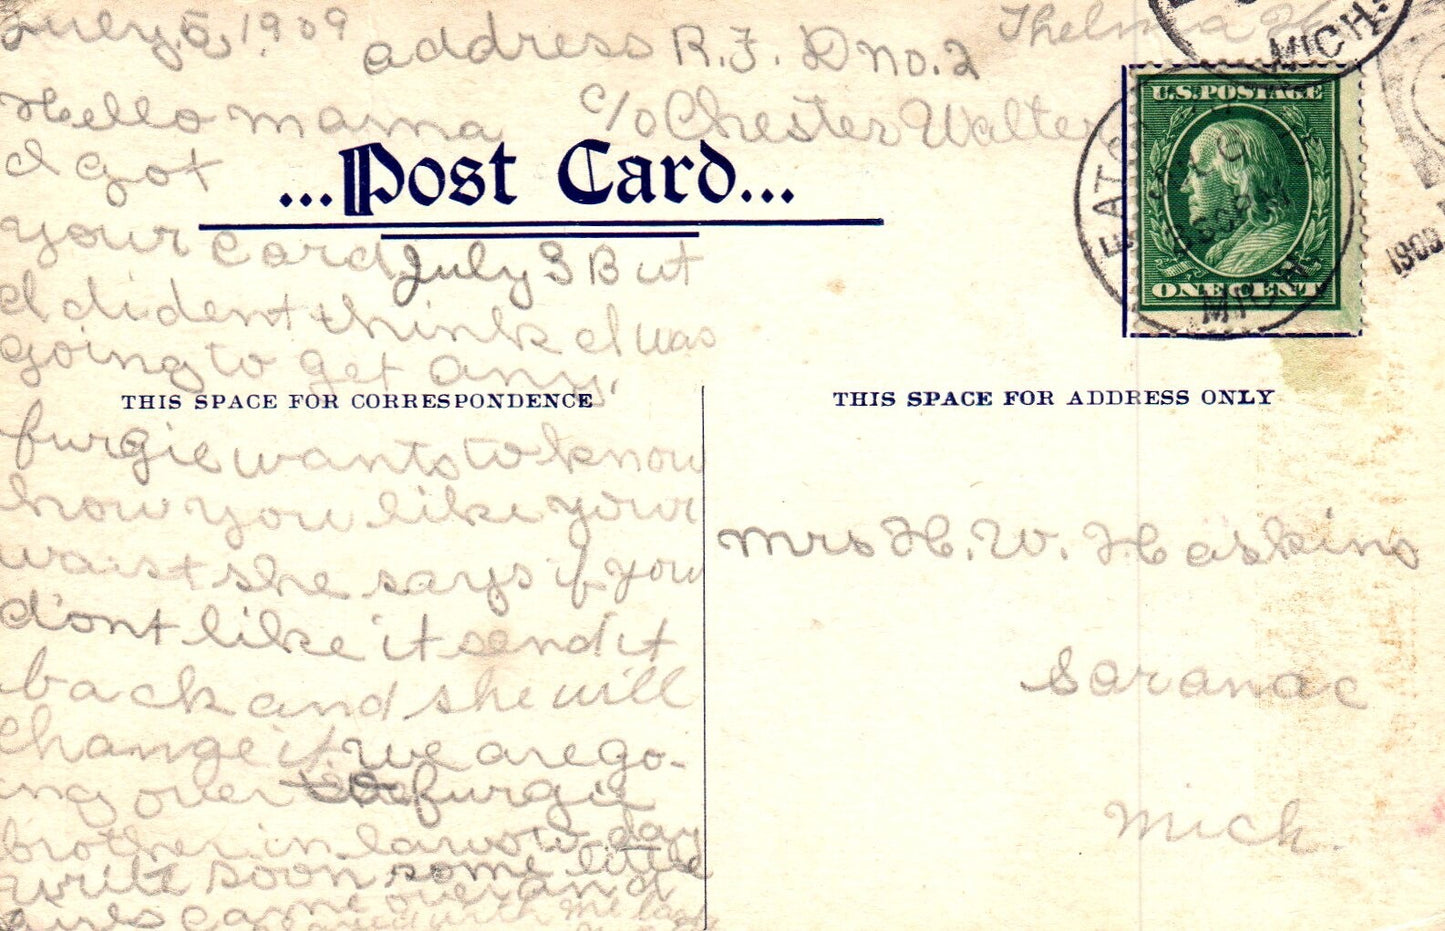 July 5, 1909
address R.F.D no. 2
Thelma H
Hello mama
c/o Chester Walter
I got
...Post Card...
your card July 3 But
I dident think I was
going to get any,
THIS SPACE FOR CORRESPONDENCE
furgie wants to know
how you like your
waist she says if you
dont like it send it
back and she will
change it we are go-
ing over furgie
brother in laws to day
write soon some little
girls came over and
played with me
MICH.
U.S. POSTAGE
ONE CENT
EATON
MICH
1909
THIS SPACE FOR ADDRESS ONLY
Mrs H. W. Haskins
Saranac
Mich.